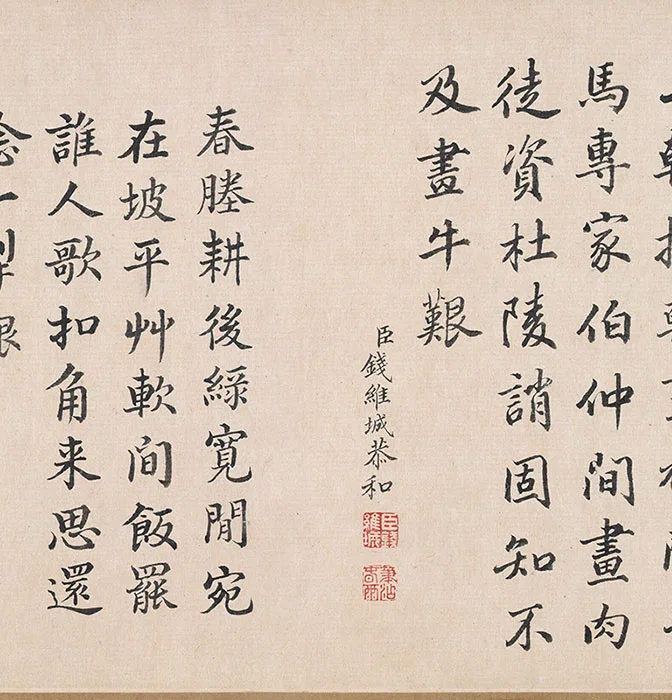 馬專家伯仲間畫肉
徒資杜陵誚固知不
及畫牛艱
臣錢維城恭和
春塍耕後綠寬閒宛
在坡平艸軟間飯罷
誰人歌扣角来思還
念一犁艱